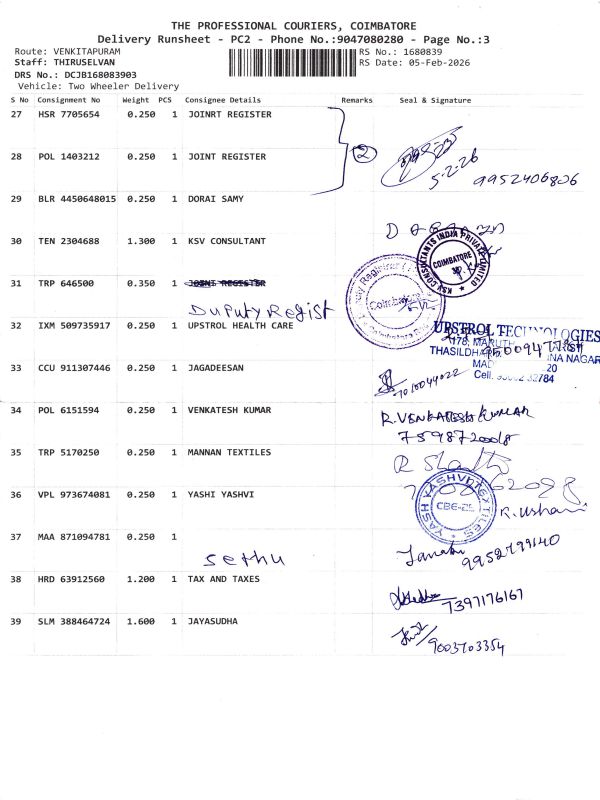 THE PROFESSIONAL COURIERS, COIMBATORE
Delivery Runsheet - PC2 - Phone No.:9047080280 - Page No.:3
Route: VENKITAPURAM RS No.: 1680839
Staff: THIRUSELVAN RS Date: 05-Feb-2026
DRS No.: DCJB168083903
Vehicle: Two Wheeler Delivery
S No Consignment No Weight PCS Consignee Details Remarks Seal & Signature
27 HSR 7705654 0.250 1 JOINRT REGISTER
2
28 POL 1403212 0.250 1 JOINT REGISTER
5-2-26
9952406806
29 BLR 4450648015 0.250 1 DORAI SAMY
30 TEN 2304688 1.300 1 KSV CONSULTANT
KSV CONSULTANTS INDIA PRIVATE LIMITED
COIMBATORE
31 TRP 646500 0.350 1 JOINT REGISTER
Duputy Regist
32 IXM 509735917 0.250 1 UPSTROL HEALTH CARE
UPSTROL TECHNOLOGIES
33 CCU 911307446 0.250 1 JAGADEESAN
34 POL 6151594 0.250 1 VENKATESH KUMAR
R.VENKATESH KUMAR
7598720018
35 TRP 5170250 0.250 1 MANNAN TEXTILES
36 VPL 973674081 0.250 1 YASHI YASHVI
YASHVI TEXTILES
CBE-25
R. Usha
37 MAA 871094781 0.250 1
Sethu
9952799140
38 HRD 63912560 1.200 1 TAX AND TAXES
7397176167
39 SLM 388464724 1.600 1 JAYASUDHA
9003703354